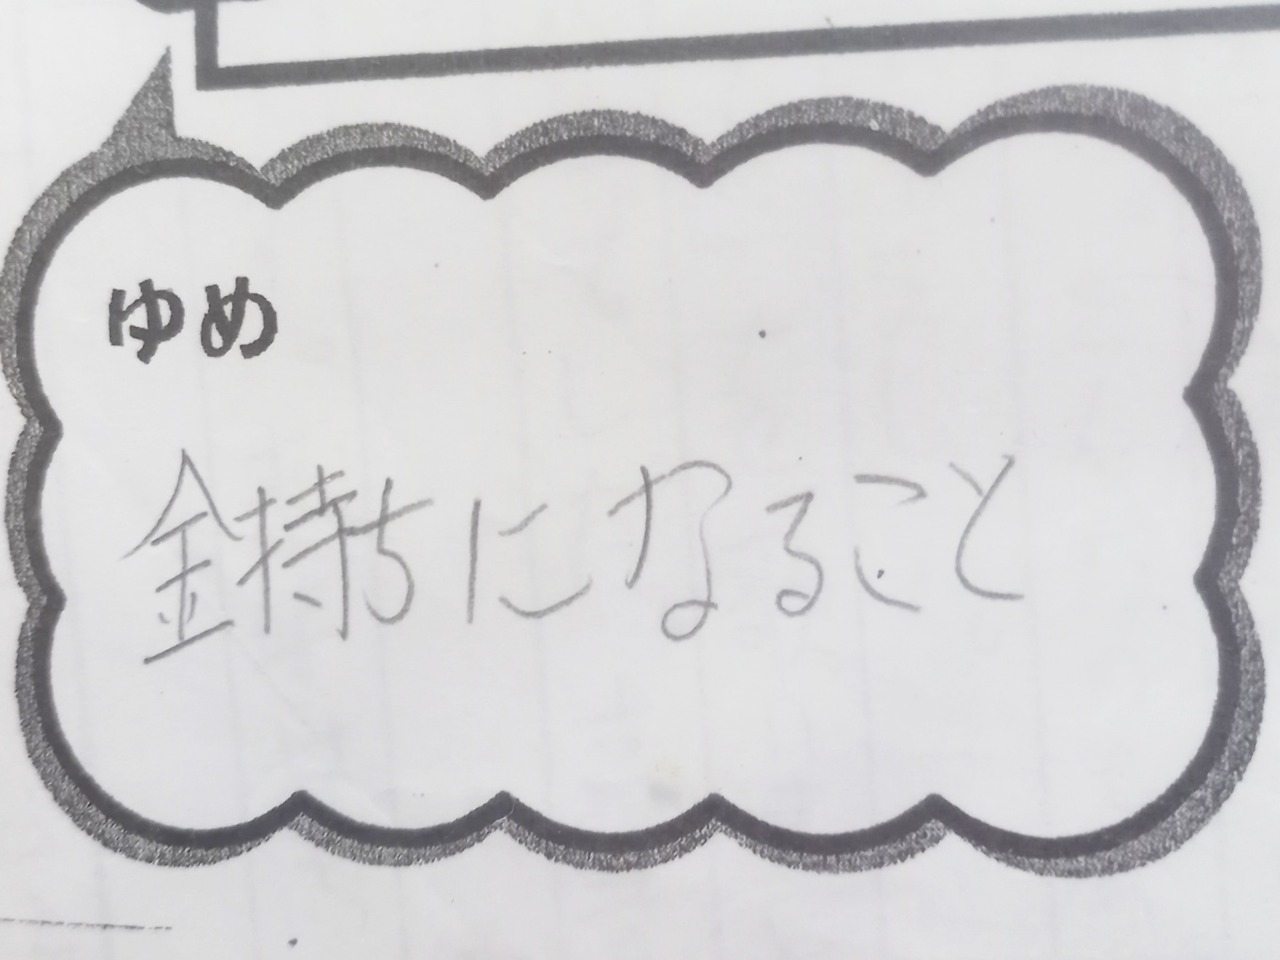 ゆめ
金持ちになること